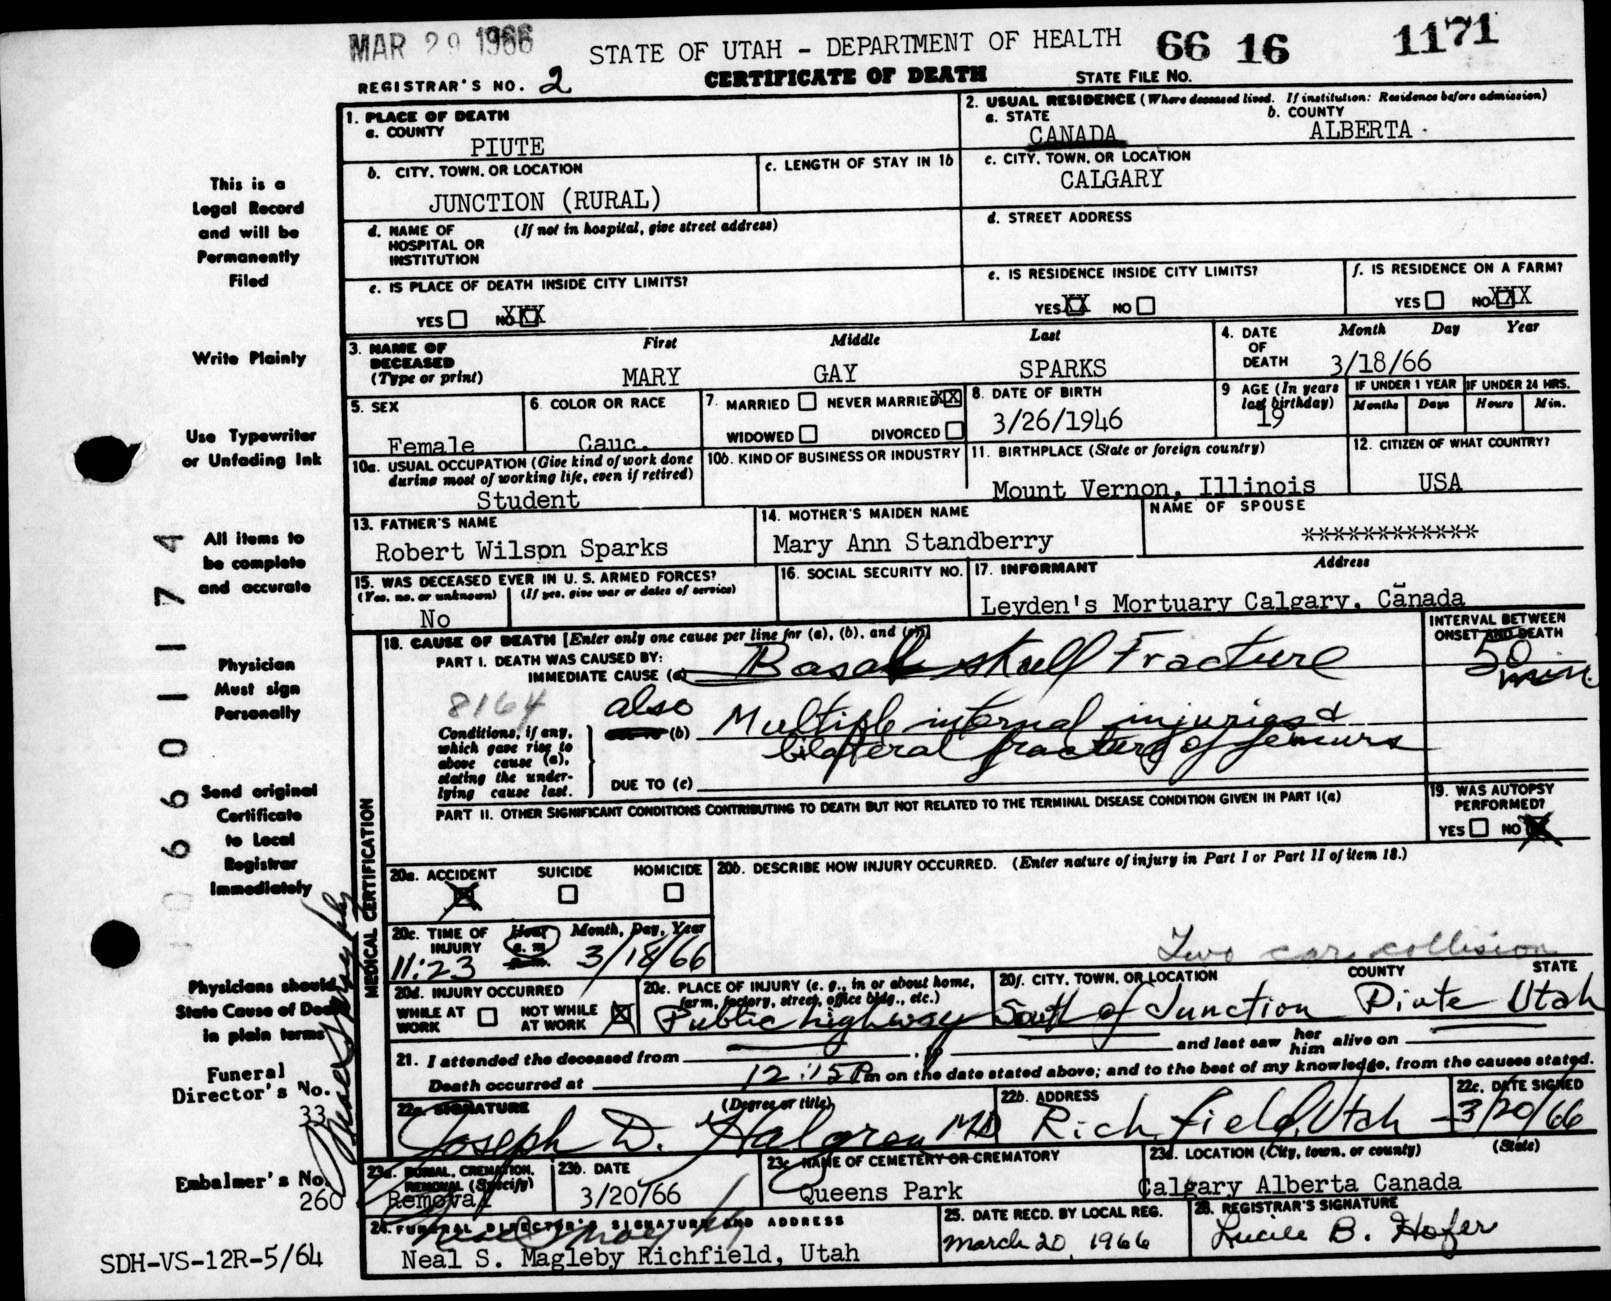 MAR 29 1966
STATE OF UTAH - DEPARTMENT OF HEALTH 66 16 1171
REGISTRAR'S NO. 2 CERTIFICATE OF DEATH STATE FILE NO.
1. PLACE OF DEATH
a. COUNTY
PIUTE
2. USUAL RESIDENCE (Where deceased lived. If institution: Residence before admission)
a. STATE b. COUNTY
CANADA ALBERTA
b. CITY, TOWN, OR LOCATION
JUNCTION (RURAL)
c. LENGTH OF STAY IN 1b
c. CITY, TOWN, OR LOCATION
CALGARY
d. NAME OF HOSPITAL OR INSTITUTION (If not in hospital, give street address)
d. STREET ADDRESS
e. IS PLACE OF DEATH INSIDE CITY LIMITS?
YES NO XXX
e. IS RESIDENCE INSIDE CITY LIMITS?
YES XX NO
f. IS RESIDENCE ON A FARM?
YES NO XXX
3. NAME OF DECEASED (Type or print)
First Middle Last
MARY GAY SPARKS
4. DATE OF DEATH Month Day Year
3/18/66
5. SEX
Female
6. COLOR OR RACE
Cauc.
7. MARRIED NEVER MARRIED XX
WIDOWED DIVORCED
8. DATE OF BIRTH
3/26/1946
9 AGE (In years last birthday)
19
IF UNDER 1 YEAR IF UNDER 24 HRS.
Months Days Hours Min.
10a. USUAL OCCUPATION (Give kind of work done during most of working life, even if retired)
Student
10b. KIND OF BUSINESS OR INDUSTRY
11. BIRTHPLACE (State or foreign country)
Mount Vernon, Illinois
12. CITIZEN OF WHAT COUNTRY?
USA
13. FATHER'S NAME
Robert Wilson Sparks
14. MOTHER'S MAIDEN NAME
Mary Ann Standberry
NAME OF SPOUSE
************
15. WAS DECEASED EVER IN U. S. ARMED FORCES?
(Yes, no, or unknown) (If yes, give war or dates of service)
No
16. SOCIAL SECURITY NO.
17. INFORMANT Address
Leyden's Mortuary Calgary, Canada
18. CAUSE OF DEATH [Enter only one cause per line for (a), (b), and (c)]
INTERVAL BETWEEN ONSET AND DEATH
PART I. DEATH WAS CAUSED BY:
IMMEDIATE CAUSE (a) Basal skull Fracture 50 min.
8164
Conditions, if any, which gave rise to above cause (a), stating the underlying cause last.
also (b) Multiple internal injuries &
bilateral fracture of femurs
DUE TO (c)
PART II. OTHER SIGNIFICANT CONDITIONS CONTRIBUTING TO DEATH BUT NOT RELATED TO THE TERMINAL DISEASE CONDITION GIVEN IN PART I(a)
19. WAS AUTOPSY PERFORMED?
YES NO
20a. ACCIDENT SUICIDE HOMICIDE
20b. DESCRIBE HOW INJURY OCCURRED. (Enter nature of injury in Part I or Part II of item 18.)
Two car collision
20c. TIME OF INJURY Hour a. m. Month, Day, Year
11:23 3/18/66
20d. INJURY OCCURRED
WHILE AT WORK NOT WHILE AT WORK
20e. PLACE OF INJURY (e. g., in or about home, farm, factory, street, office bldg., etc.)
Public highway
20f. CITY, TOWN, OR LOCATION COUNTY STATE
South of Junction Piute Utah
21. I attended the deceased from to and last saw her him alive on
Death occurred at 12:15 P m on the date stated above; and to the best of my knowledge, from the causes stated.
22a. SIGNATURE (Degree or title)
Joseph D. Halgren MD
22b. ADDRESS
Richfield, Utah
22c. DATE SIGNED
3/20/66
23a. BURIAL, CREMATION, REMOVAL (Specify)
Removal
23b. DATE
3/20/66
23c NAME OF CEMETERY OR CREMATORY
Queens Park
23d. LOCATION (City, town, or county) (State)
Calgary Alberta Canada
24. FUNERAL DIRECTOR'S SIGNATURE AND ADDRESS
Neal S. Magleby Richfield, Utah
25. DATE RECD. BY LOCAL REG.
March 20, 1966
26. REGISTRAR'S SIGNATURE
Lucile B. Hofer
MEDICAL CERTIFICATION
This is a
Legal Record
and will be
Permanently
Filed
Write Plainly
Use Typewriter
or Unfading Ink
All items to
be complete
and accurate
Physician
Must sign
Personally
Send original
Certificate
to Local
Registrar
Immediately
Physicians should
State Cause of Death
in plain terms
Funeral
Director's No.
33
Embalmer's No.
260
066011174
SDH-VS-12R-5/64